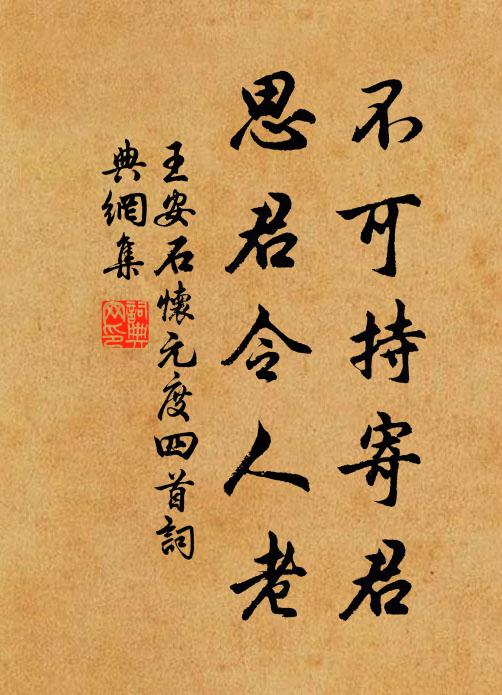 不可持寄君
思君令人老
王安石懷元度四首詞
典網集
詞典
网印